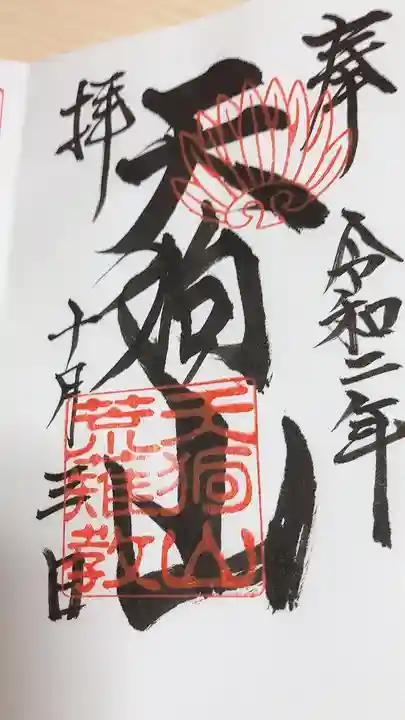 奉
拝
令和二年
天狗山
十月三日
天狗山
荒薙教